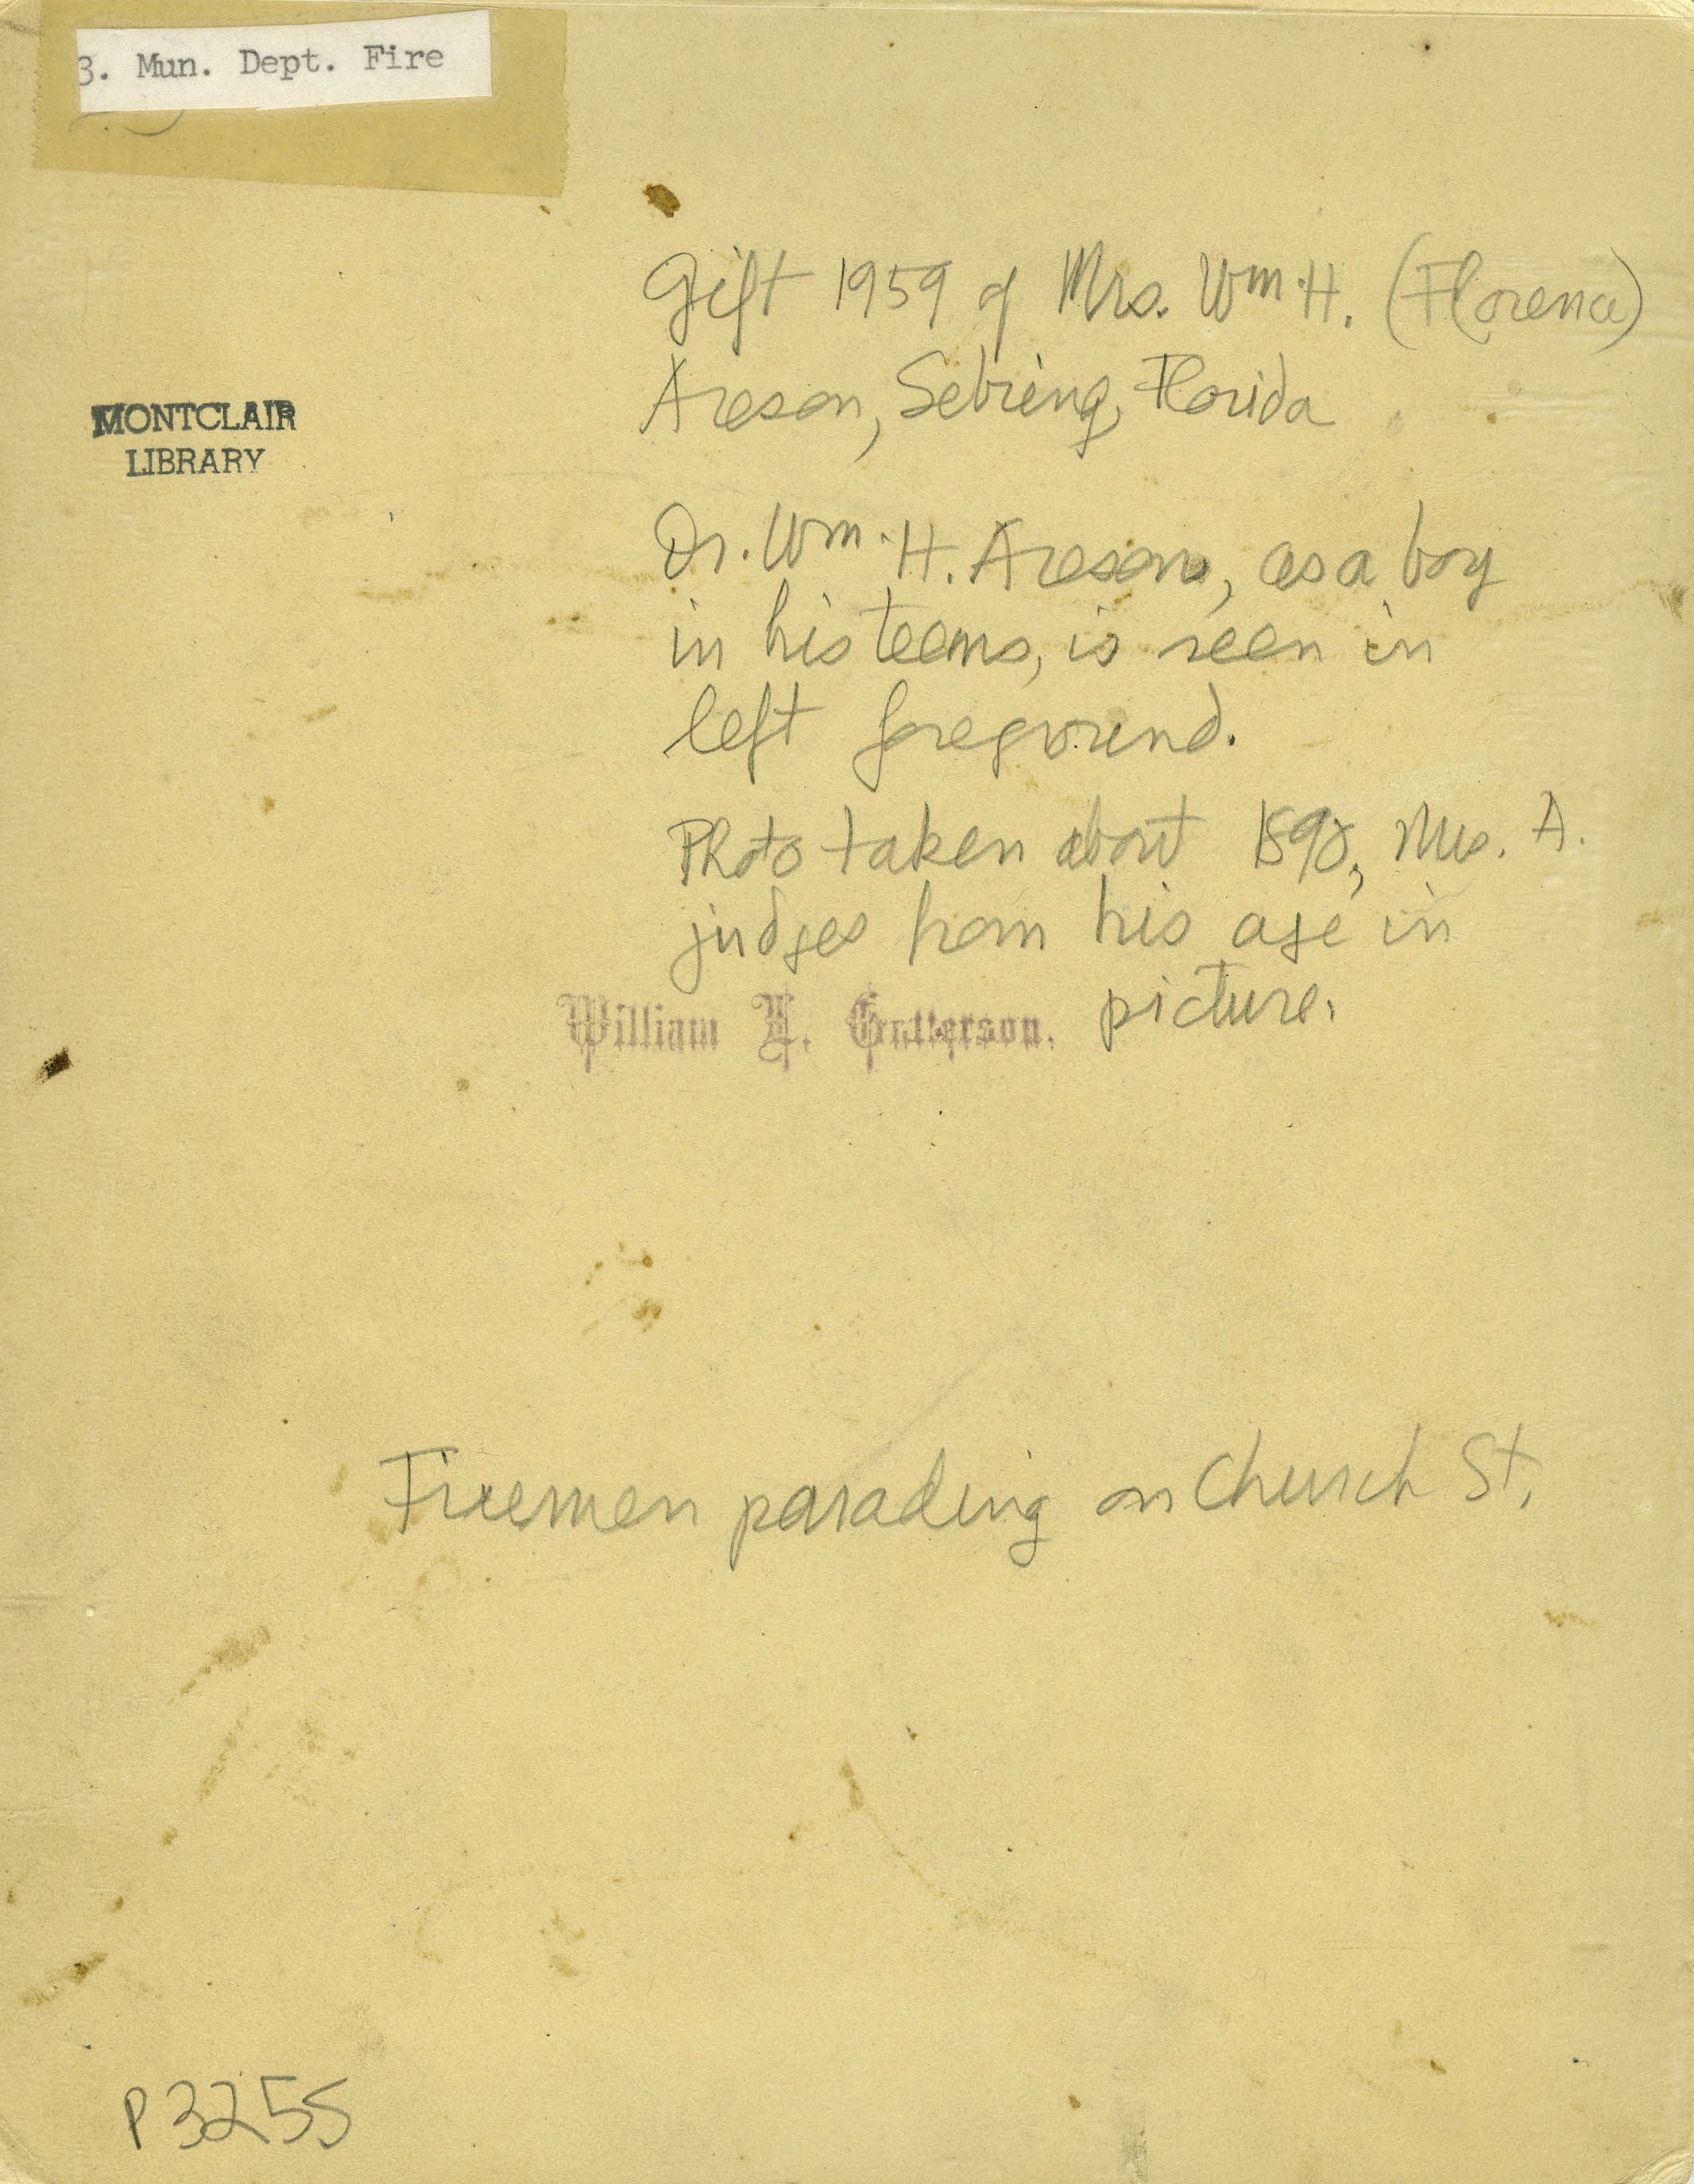 3. Mun. Dept. Fire
Gift 1959 of Mrs. Wm. H. (Florence)
Areson, Sebring, Florida
MONTCLAIR
LIBRARY
Dr. Wm. H. Areson, as a boy
in his teens, is seen in
left foreground.
Photo taken about 1890, Mrs. A.
judges from his age in
picture.
William
Firemen parading on Church St.
P3255